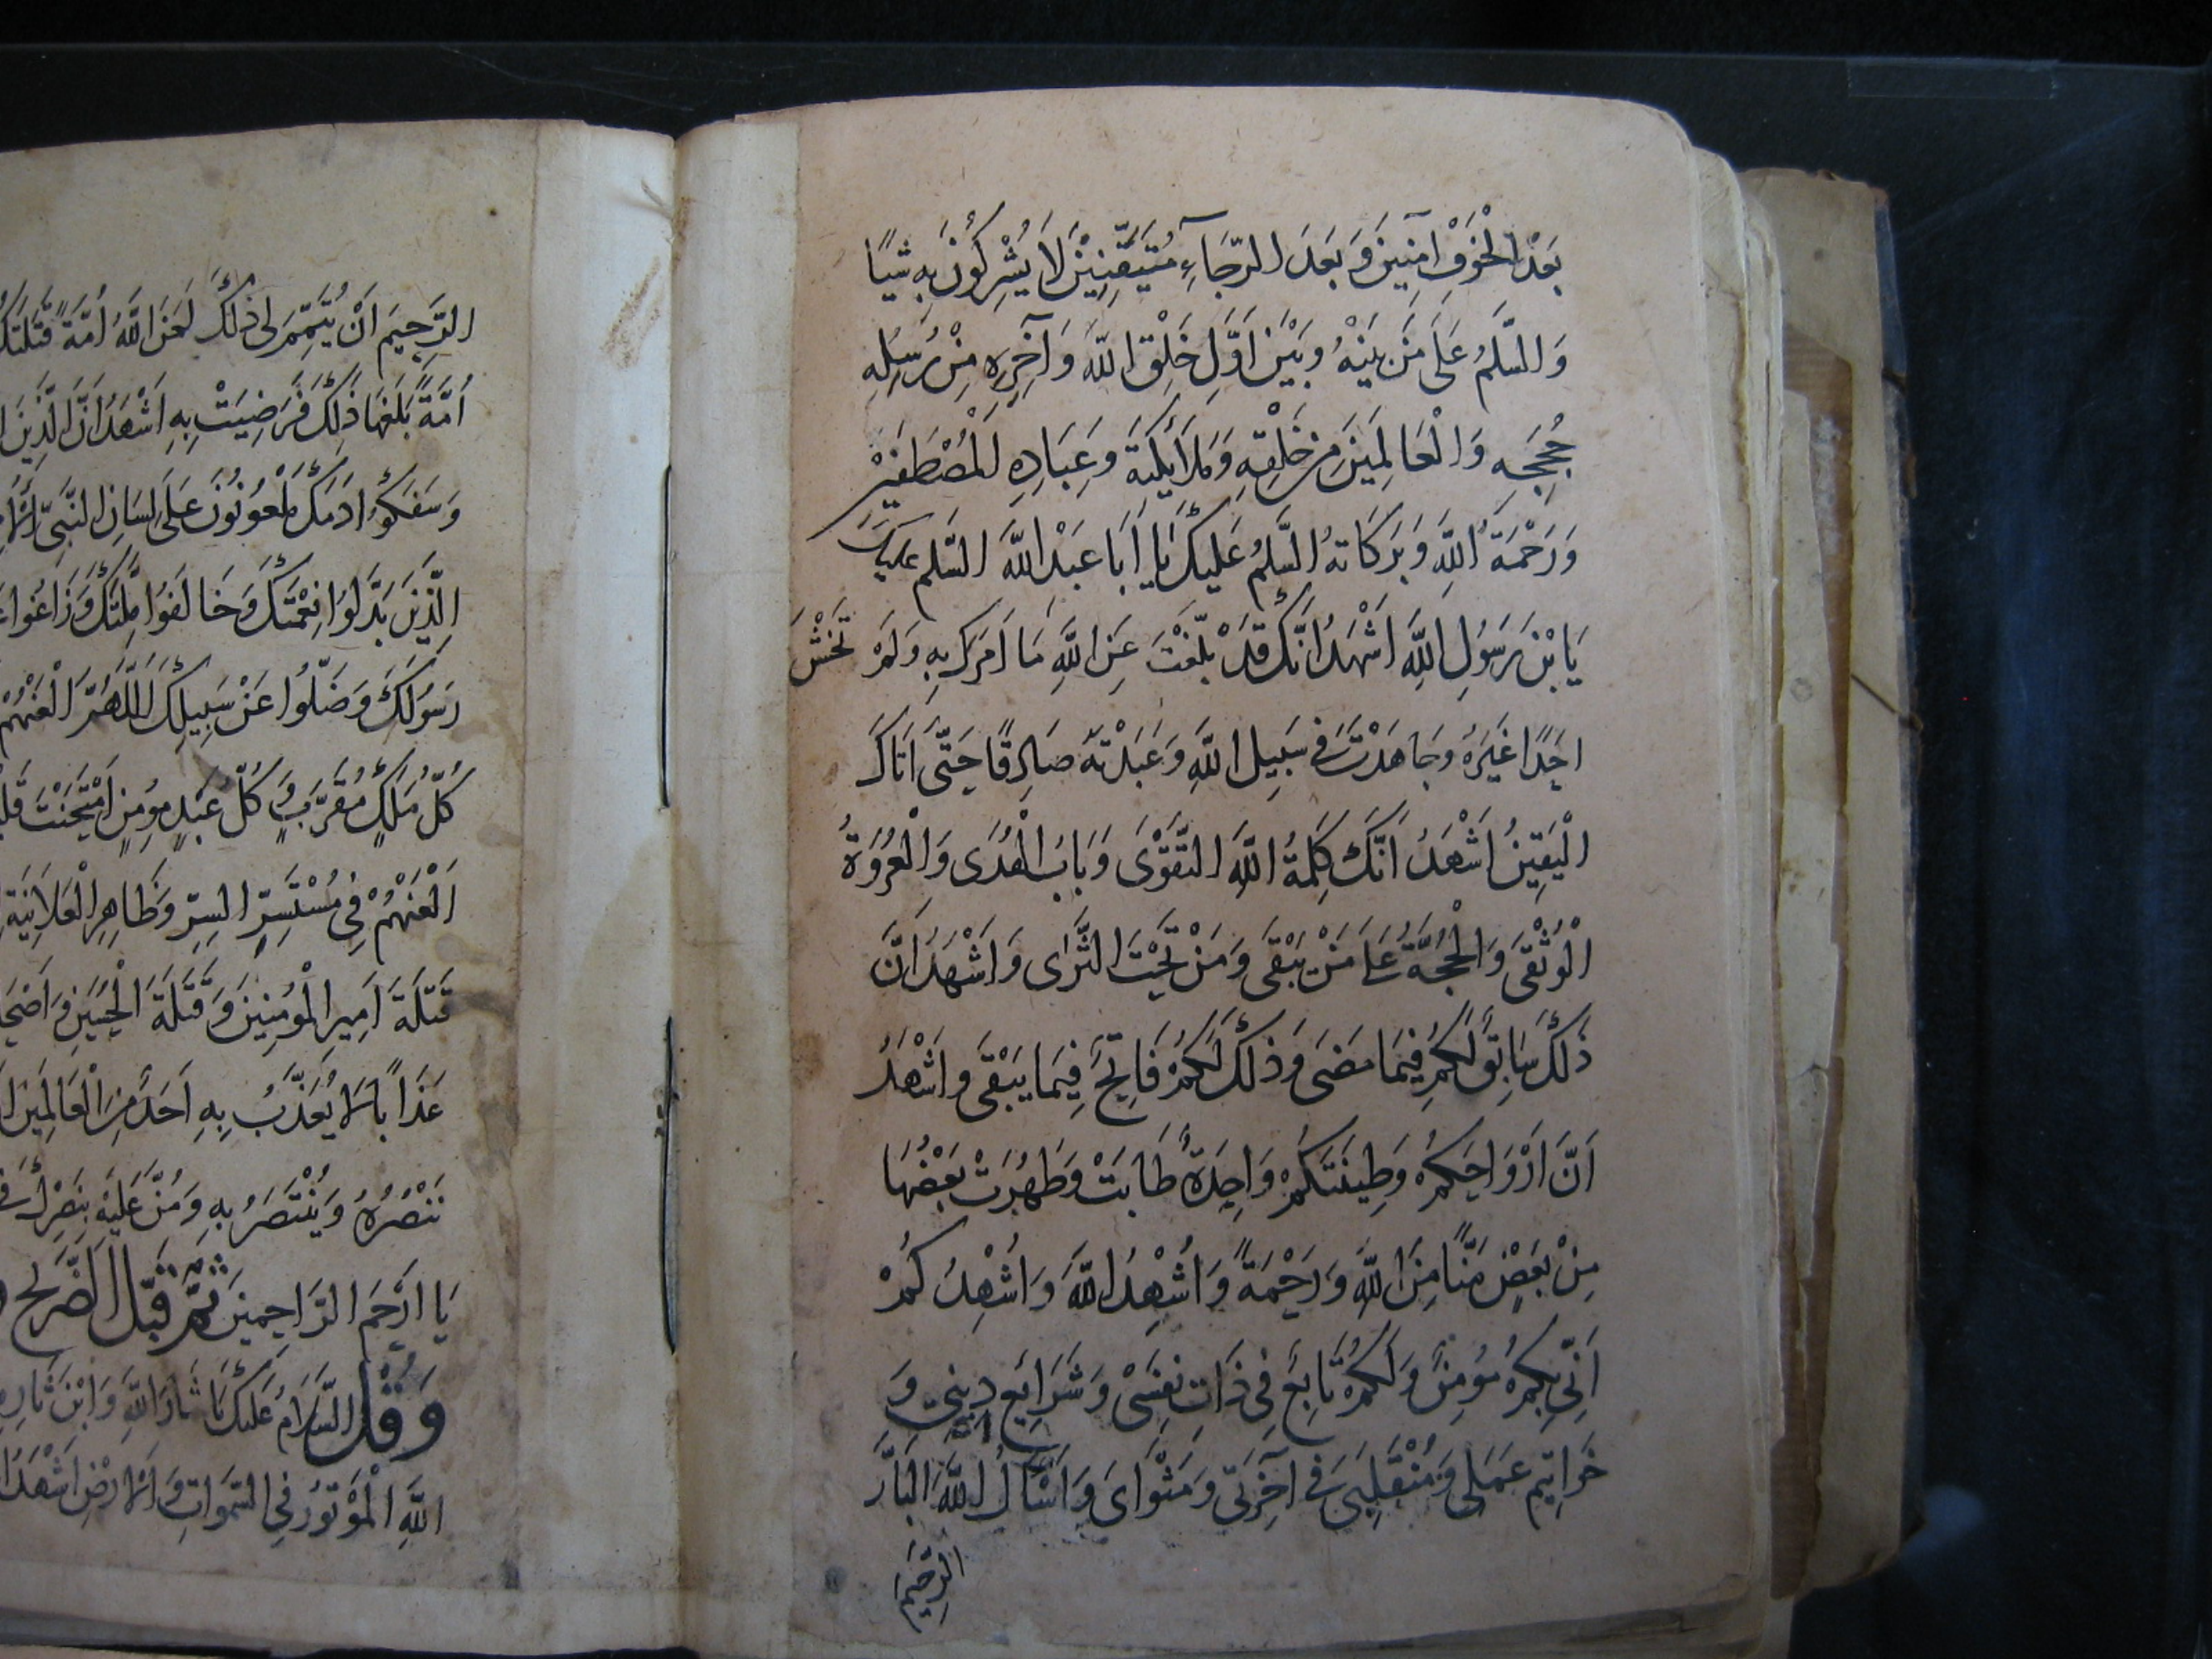 بَعْدَ الْخَوْفِ آمِنِينَ وَ بَعْدَ الرَّجَاءِ مُتَيَقِّنِينَ لَا يُشْرِكُونَ بِهِ شَيْاً
وَالسَّلَمُ عَلَى مَنْ بَيْنَهُ وَبَيْنَ اَوَّلِ خَلْقِ اللّٰهِ وَآخِرِهِ مِنْ رُسُلِهِ
حُجَجِهِ وَالْعَالَمِينَ مِنْ خَلْقِهِ وَمَلَائِكَتِهِ وَعِبَادِهِ الْمُصْطَفَيْنَ
وَرَحْمَةُ اللّٰهِ وَبَرَكَاتهُ السَّلَمُ عَلَيْكَ يَا اَبَا عَبْدِ اللّٰهِ السَّلَم عليك
يَابْنَ رَسُولِ اللّٰهِ اَشْهَدُ انَّكَ قَدْ بَلَّغْتَ عَنِ اللّٰهِ مَا اَمَرَكَ بِهِ وَلَمْ تَخْشَ
احَدًا غَيْرَهُ وَجَاهَدْتَ فِي سَبِيلِ اللّٰهِ وَعَبَدْتَهُ صَادِقًا حَتَّى اَتَاكَ
الْيَقِينُ اَشْهَدُ اَنَّكَ كَلِمَةُ اللّٰهِ التَّقْوَى وَبَابُ الْهُدَى وَالْعُرْوَةُ
الْوُثْقَى وَالْحُجَّةُ عَلَى مَنْ يَبْقَى وَمَنْ تَحْتَ الثَّرَى وَاَشْهَدُ اَنَّ
ذَلِكَ سَابِقٌ لَكُمْ فِيمَا مَضَى وَذَلِكَ لَكُمْ فَاتِحٌ فِيمَا يَبْقَى وَاَشْهَدُ
اَنَّ اَرْوَاحَكُمْ وَطِينَتَكُمْ وَاحِدَةٌ طَابَتْ وَطَهُرَتْ بَعْضُهَا
مِنْ بَعْضٍ مَنًّا مِنَ اللّٰهِ وَرَحْمَةً وَاُشْهِدُ اللّٰهَ وَاُشْهِدُكُمْ
اَنِّي بِكُمْ مُؤمِنٌ وَلَكُمْ تَابِعٌ فِي ذَاتِ نَفْسِي وَشَرَايِعِ دِينِي وَ
خَوَاتِيمِ عَمَلِي وَمُنْقَلَبِي فِي آخِرَتِي وَمَثْوَايَ وَاَسْاَلُ اللّٰهَ الْبَارَّ
الرَّحِيمَ
الرَّحِيمَ اَنْ يُتَمِّمَ لِي ذَلِكَ لَعَنَ اللّٰهُ اُمَّةً قَتَلَتْكَ
اُمَّةً بَلَغَهَا ذَلِكَ فَرَضِيَتْ بِهِ اَشْهَدُ اَنَّ الَّذِينَ
وَسَفَكُوا دَمَكَ مَلْعُونُونَ عَلَى لِسَانِ النَّبِيِّ
الَّذِينَ بَدَّلُوا نِعْمَتَكَ وَخَالَفُوا مِلَّتَكَ وَزَاغُوا
رَسُولَكَ وَضَلُّوا عَنْ سَبِيلِكَ اَللّٰهُمَّ الْعَنْهُمْ
كُلُّ مَلَكٍ مُقَرَّبٍ وَ كُلُّ عَبْدٍ مؤمِنٍ اِمْتَحَنْتَ
اَلْعَنْهُمْ فِي مُسْتَسِرِّ السِرِّ وَظَاهِرِ الْعَلَانِيَةِ
قَتَلَةَ اَمِيرِ الْمُؤمِنِينَ وَقَتَلَةَ الْحُسَيْنِ وَ
عَذَاباً لَا يُعَذَّبُ بِهِ اَحَدٌ مِنَ الْعَالَمِينَ
تَنْصُرُهُ وَيُنْتَصَرُ بِهِ وَمُنَّ عَلَيْهِ بِنَصْرِكَ فِي
يَا اَرْحَمَ الرَّاحِمِينَ ثُمَّ قَبِّلِ الضَّرِيحَ
وَقُلْ السَّلَامُ عَلَيْكَ يَا ثَارَ اللّٰهِ وَابْنَ ثَارِهِ
اللّٰهِ الْمَوْتُورَ فِي السَّمَوَاتِ وَالْاَرْضِ اَشْهَدُ